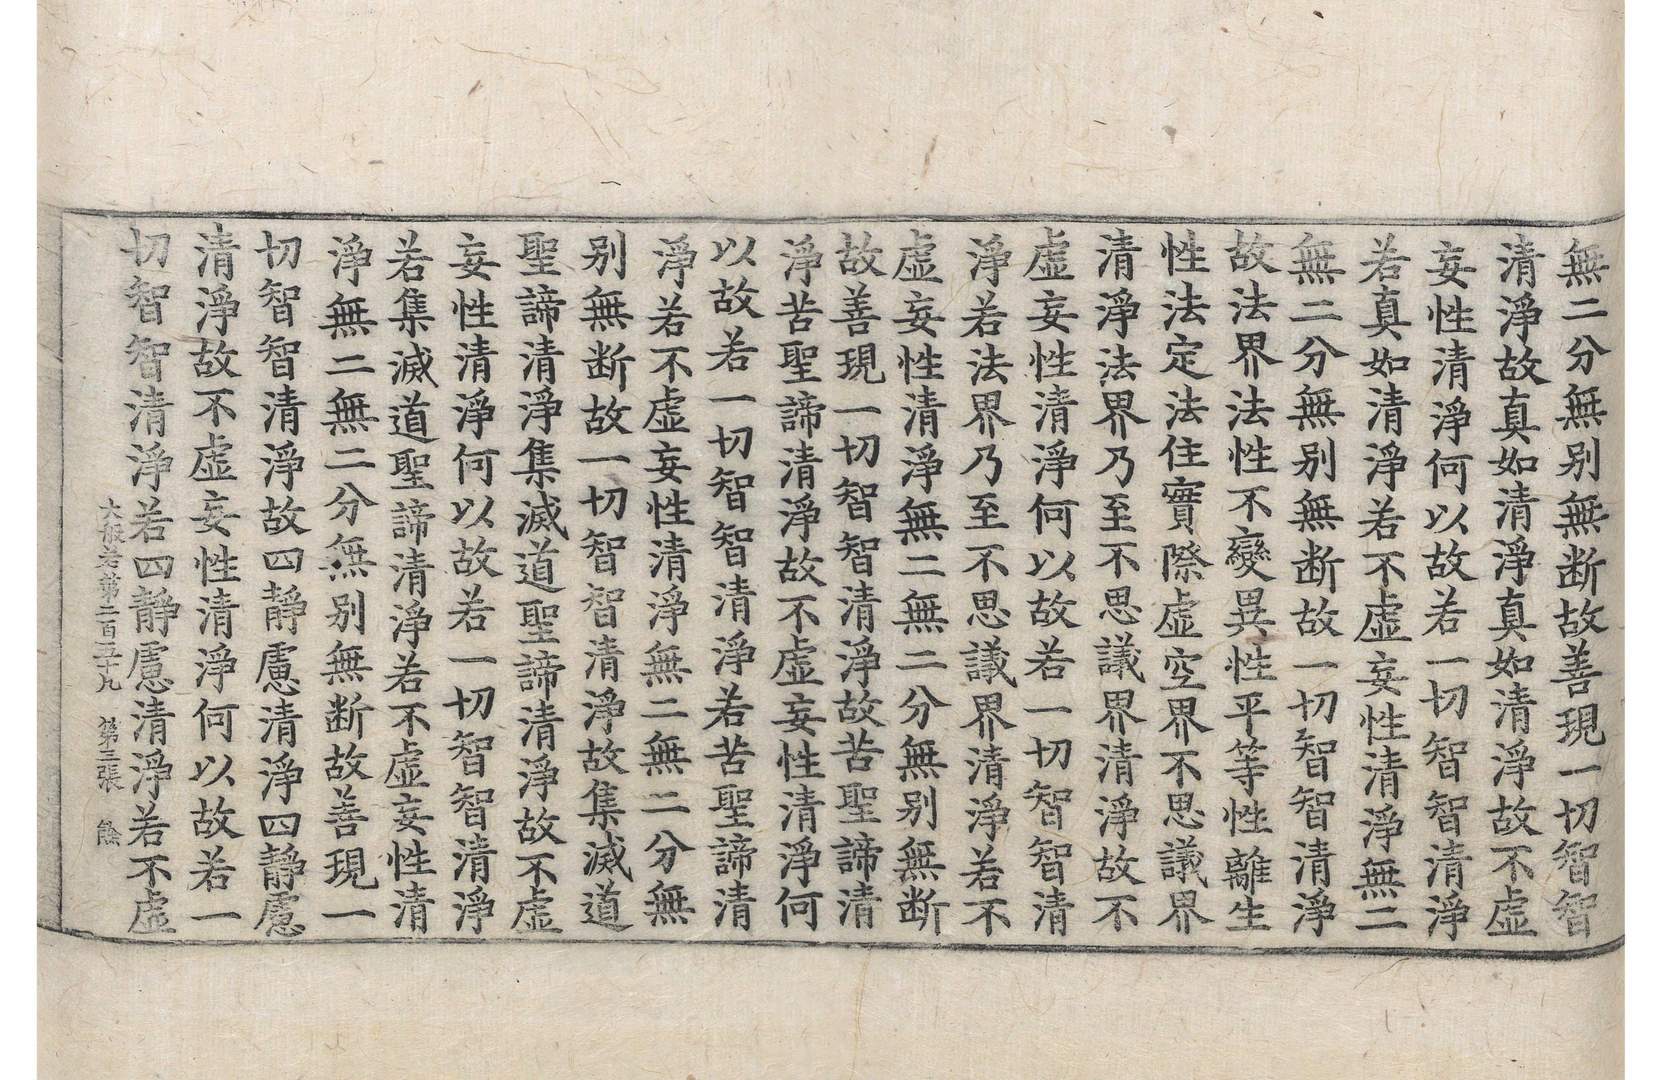 無二分無別無断故善現一切智智
清淨故真如清淨真如清淨故不虛
妄性清淨何以故若一切智智清淨
若真如清淨若不虛妄性清淨無二
無二分無別無断故一切智智清淨
故法界法性不變異性平等性離生
性法定法住實際虛空界不思議界
清淨法界乃至不思議界清淨故不
虛妄性清淨何以故若一切智智清
淨若法界乃至不思議界清淨若不
虛妄性清淨無二無二分無別無断
故善現一切智智清淨故苦聖諦清
淨苦聖諦清淨故不虛妄性清淨何
以故若一切智智清淨若苦聖諦清
淨若不虛妄性清淨無二無二分無
別無断故一切智智清淨故集滅道
聖諦清淨集滅道聖諦清淨故不虛
妄性清淨何以故若一切智智清淨
若集滅道聖諦清淨若不虛妄性清
淨無二無二分無別無断故善現一
切智智清淨故四靜慮清淨四靜慮
清淨故不虛妄性清淨何以故若一
切智智清淨若四靜慮清淨若不虛
大般若第二百五十九 第三張 餘